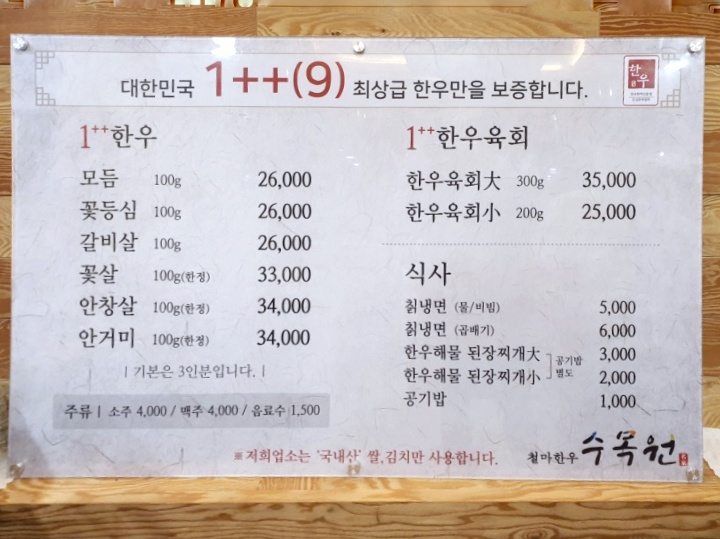 대한민국 1++(9) 최상급 한우만을 보증합니다.
한우
1++한우
모듬 100g 26,000
꽃등심 100g 26,000
갈비살 100g 26,000
꽃살 100g(한정) 33,000
안창살 100g(한정) 34,000
안거미 100g(한정) 34,000
| 기본은 3인분입니다. |
주류 | 소주 4,000 / 맥주 4,000 / 음료수 1,500
1++한우육회
한우육회大 300g 35,000
한우육회小 200g 25,000
식사
칡냉면 (물/비빔) 5,000
칡냉면 (곱배기) 6,000
한우해물 된장찌개大 3,000
한우해물 된장찌개小 2,000
공기밥
별도
공기밥 1,000
※ 저희업소는 '국내산' 쌀,김치만 사용합니다.
철마한우 수목원